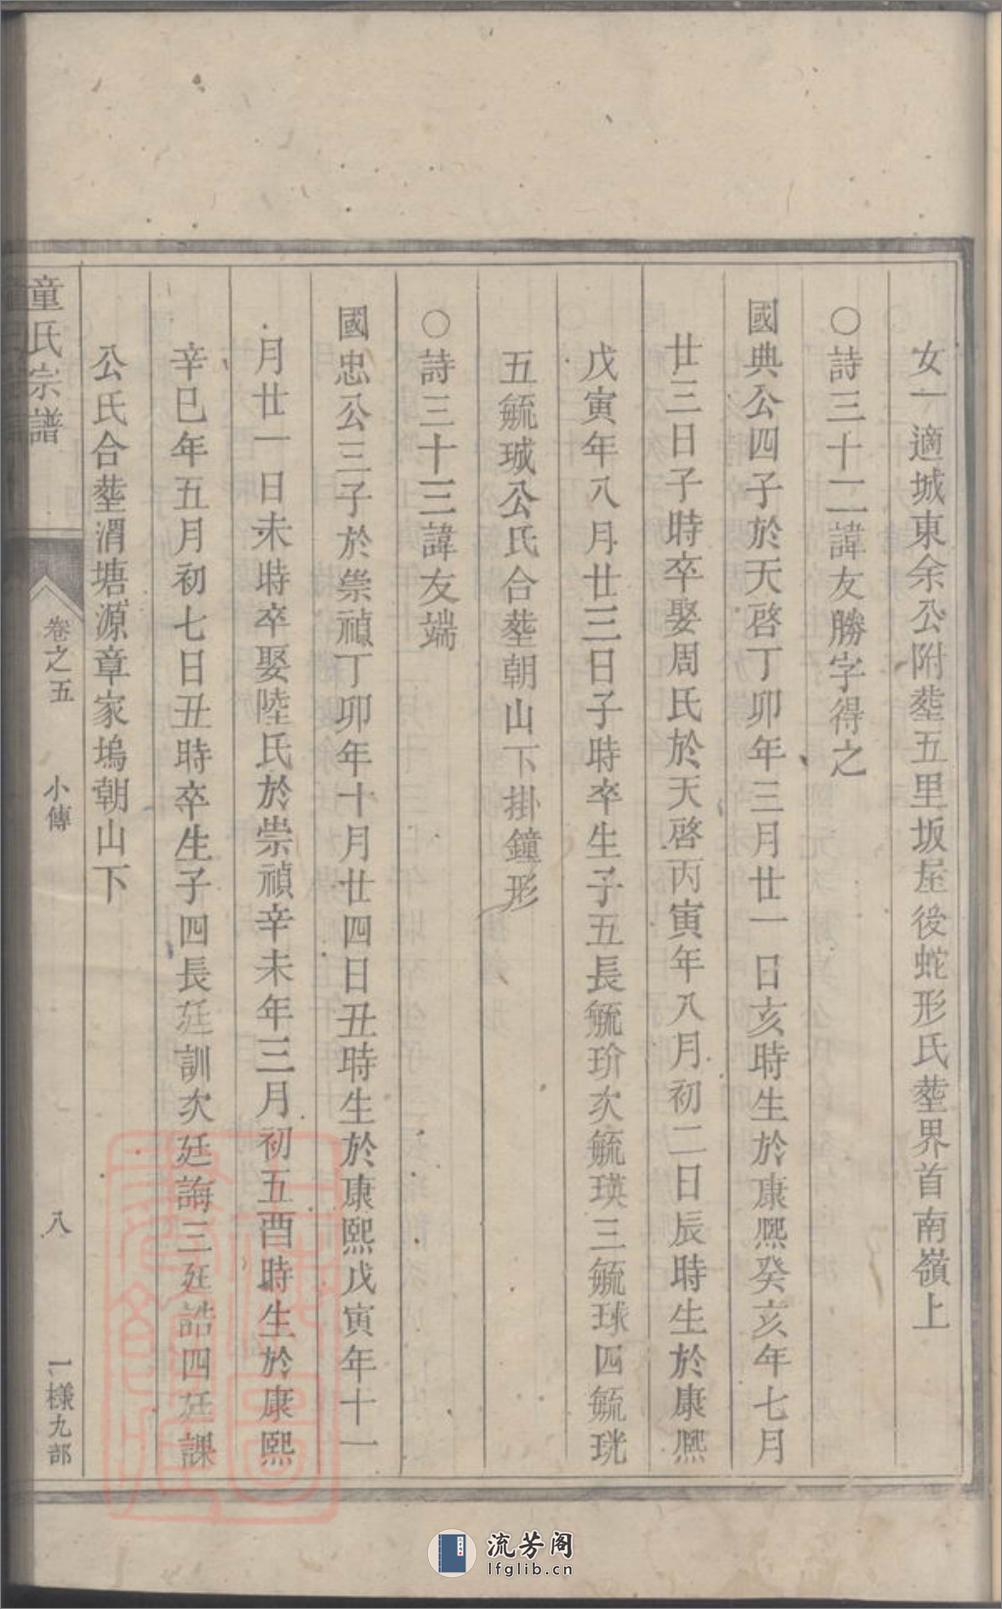 女一適城東余公附塟五里坂屋後蛇形氏塟界首南嶺上
○詩三十二諱友勝字得之
國典公四子於天啓丁卯年三月廿一日亥時生於康熙癸亥年七月
廿三日子時卒娶周氏於天啓丙寅年八月初二日辰時生於康熙
戊寅年八月廿三日子時卒生子五長毓玠次毓瑛三毓球四毓珖
五毓珹公氏合塟朝山下掛鐘形
○詩三十三諱友端
國忠公三子於崇禎丁卯年十月廿四日丑時生於康熙戊寅年十一
月廿一日未時卒娶陸氏於崇禎辛未年三月初五酉時生於康熙
辛巳年五月初七日丑時卒生子四長廷訓次廷誨三廷誥四廷課
公氏合塟渭塘源章家塢朝山下
童氏宗譜
卷之五
小傳
八
一樣九部
流芳阁
lfglib.cn